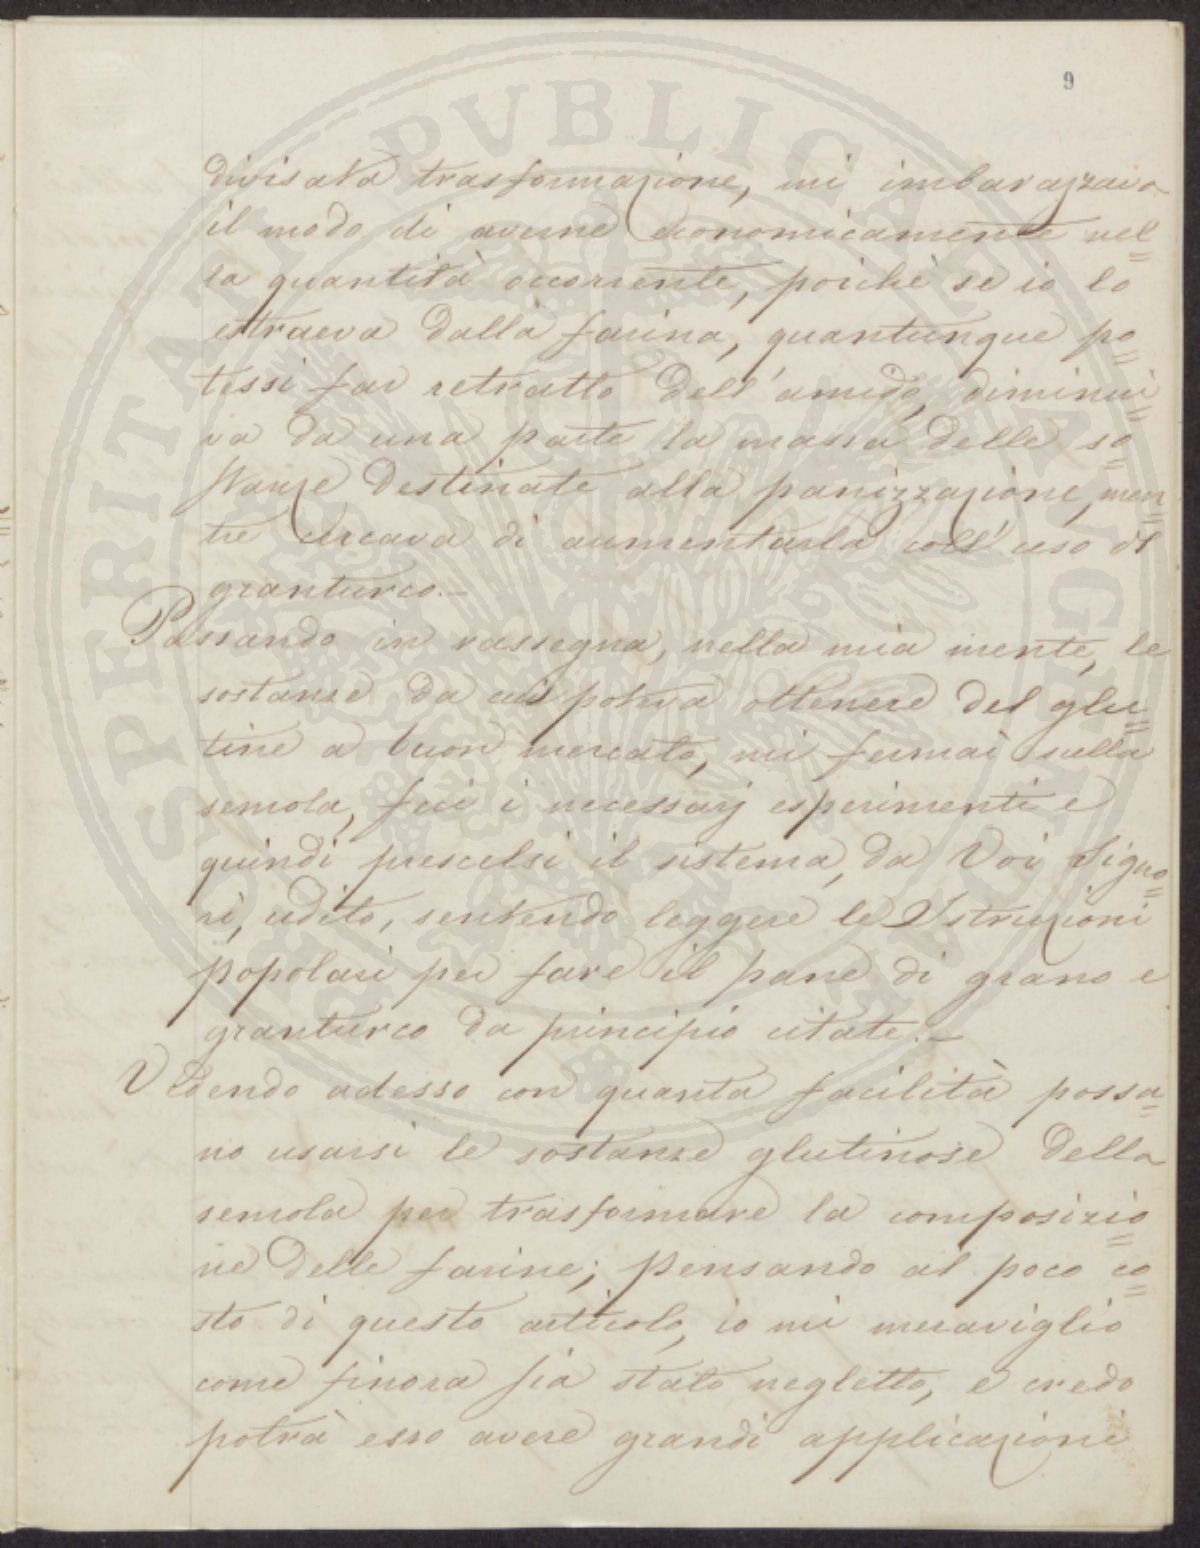 9
divisata trasformazione, mi imbarazzava
il modo di averne economicamente nel=
la quantità occorrente, poichè se io lo
estraeva dalla farina, quantunque po=
tessi far retratto dell'amido, diminui=
va da una parte la massa delle so=
stanze destinate alla panizzazione, men=
tre cercava di aumentarla coll'uso del
granturco.—
Passando in rassegna, nella mia mente, le
sostanze da cui poteva ottenere del glu=
tine a buon mercato, mi fermai sulla
semola, feci i necessarj esperimenti e
quindi prescelsi il sistema, da Voi Signo=
ri, udito, sentendo leggere le Istruzioni
popolari per fare il pane di grano e
granturco da principio citate.—
Vedendo adesso con quanta facilità possa=
no usarsi le sostanze glutinose della
semola per trasformare la composizio=
ne delle farine; pensando al poco co=
sto di questo articolo, io mi meraviglio
come finora sia stato negletto, e credo
potrà esso avere grandi applicazioni
SPERITATI PVBLICAE AVGENDAE